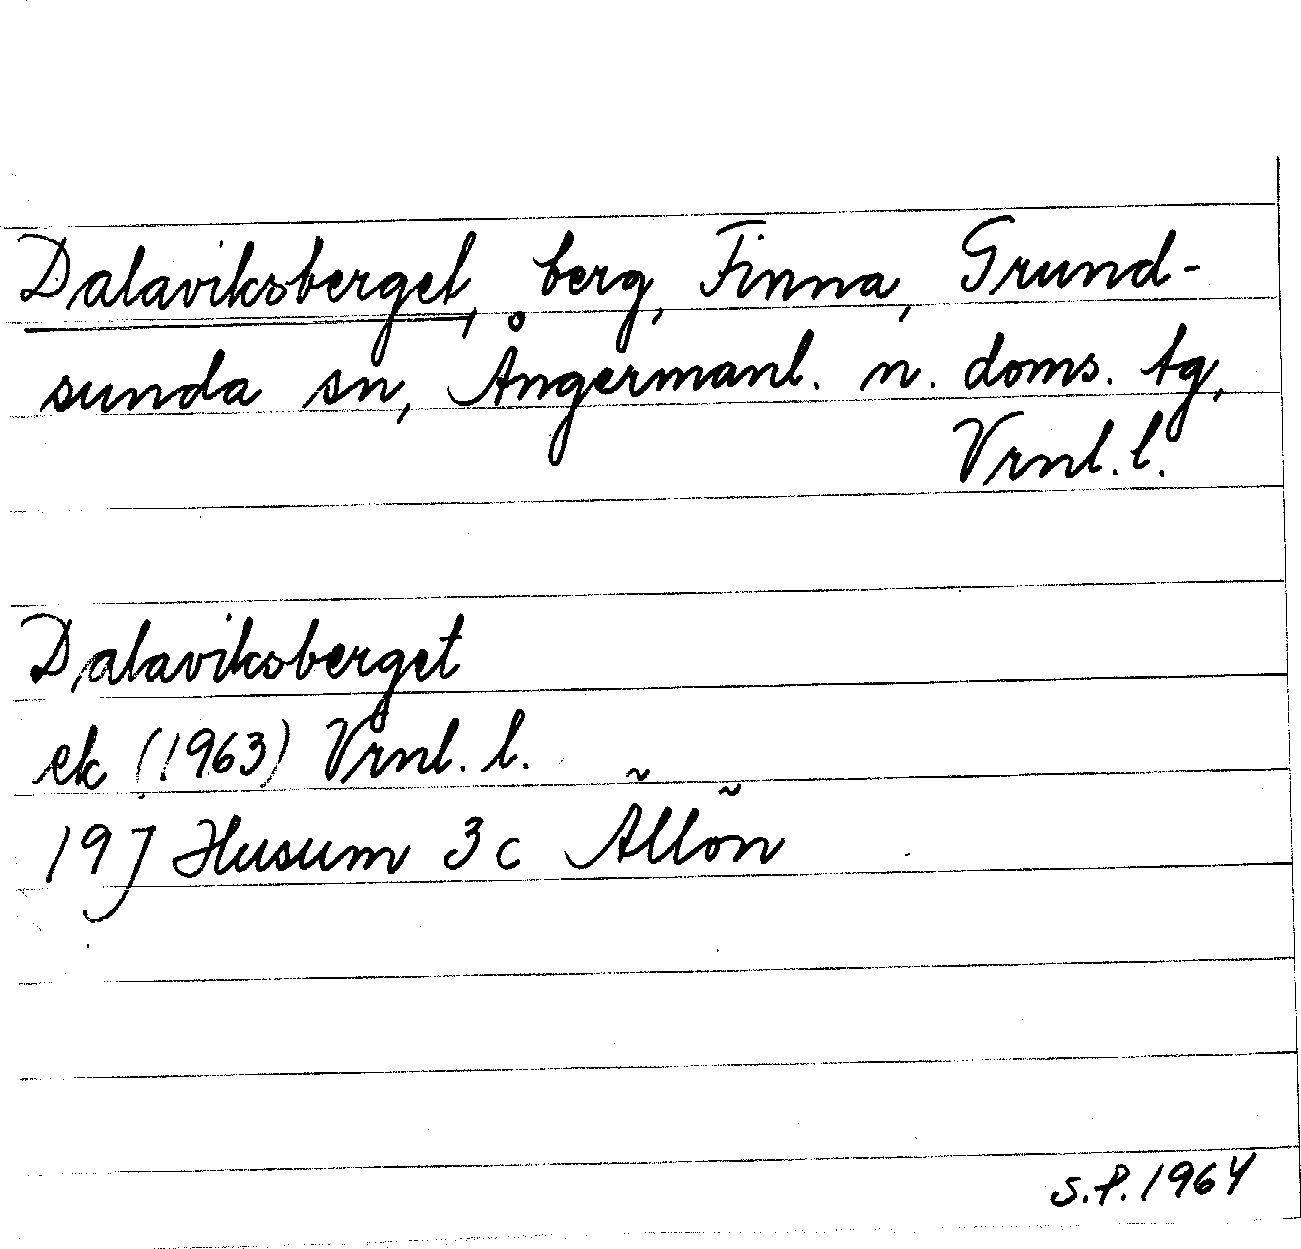 Dalaviksberget, berg, Finna, Grund-
sunda sn, Ångermanl. n. doms. tg,
Vrnl. l.
Dalaviksberget
ek (1963) Vrnl. l.
19 J Husum 3 c Ällön
S.P. 1964